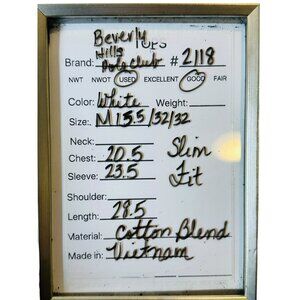 Beverly
Hills
Brand: Polo Club # 2118
NWT NWOT USED EXCELLENT GOOD FAIR
Color: White Weight:
Size: M 15.5/32/32
Neck:
Chest: 20.5 Slim
Sleeve: 23.5 Fit
Shoulder:
Length: 28.5
Material: Cotton Blend
Made in: Vietnam